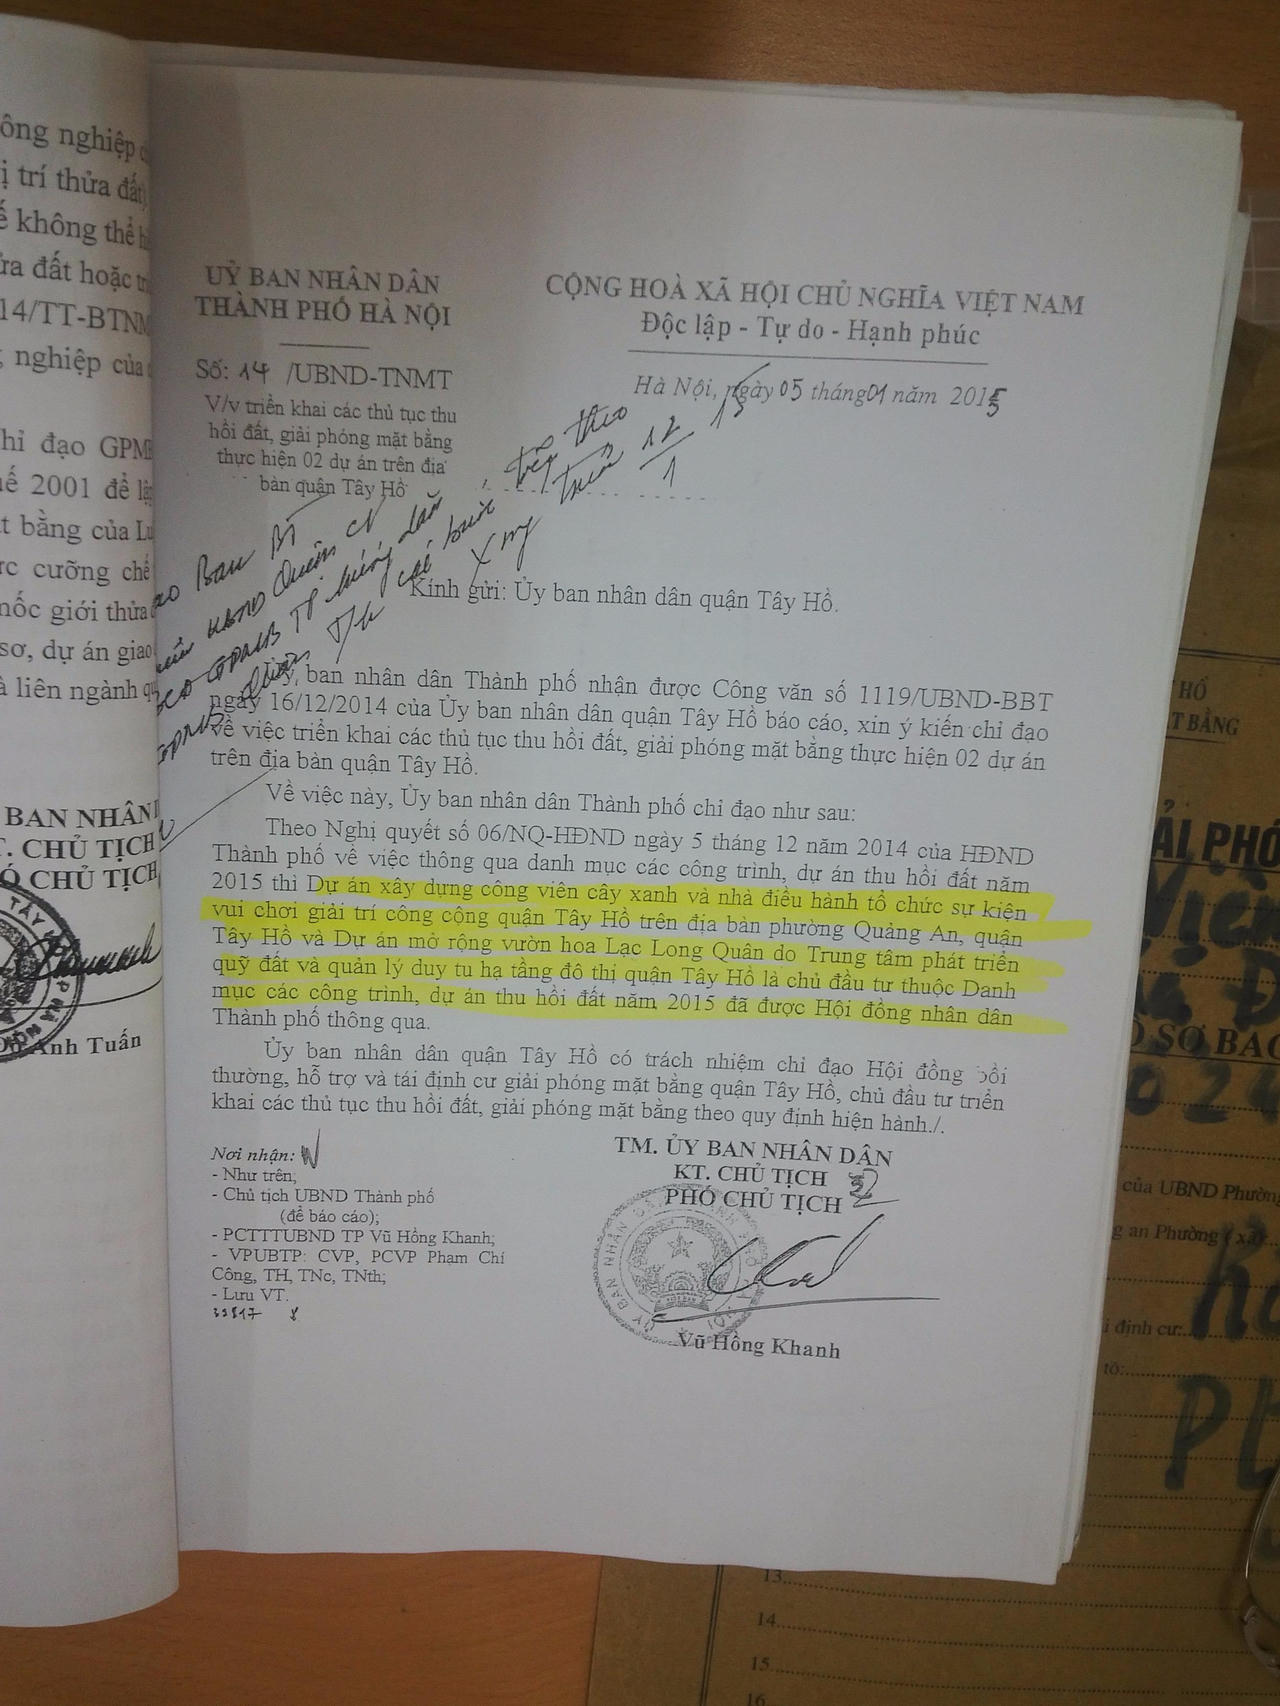 UỶ BAN NHÂN DÂN
THÀNH PHỐ HÀ NỘI
Số: 14 /UBND-TNMT
V/v triển khai các thủ tục thu
hồi đất, giải phóng mặt bằng
thực hiện 02 dự án trên địa
bàn quận Tây Hồ
CỘNG HOÀ XÃ HỘI CHỦ NGHĨA VIỆT NAM
Độc lập - Tự do - Hạnh phúc
Hà Nội, ngày 05 tháng 01 năm 2015
Kính gửi: Ủy ban nhân dân quận Tây Hồ.
Ủy ban nhân dân Thành phố nhận được Công văn số 1119/UBND-BBT
ngày 16/12/2014 của Ủy ban nhân dân quận Tây Hồ báo cáo, xin ý kiến chỉ đạo
về việc triển khai các thủ tục thu hồi đất, giải phóng mặt bằng thực hiện 02 dự án
trên địa bàn quận Tây Hồ.
Về việc này, Ủy ban nhân dân Thành phố chỉ đạo như sau:
Theo Nghị quyết số 06/NQ-HĐND ngày 5 tháng 12 năm 2014 của HĐND
Thành phố về việc thông qua danh mục các công trình, dự án thu hồi đất năm
2015 thì Dự án xây dựng công viên cây xanh và nhà điều hành tổ chức sự kiện
vui chơi giải trí công cộng quận Tây Hồ trên địa bàn phường Quảng An, quận
Tây Hồ và Dự án mở rộng vườn hoa Lạc Long Quân do Trung tâm phát triển
quỹ đất và quản lý duy tu hạ tầng đô thị quận Tây Hồ là chủ đầu tư thuộc Danh
mục các công trình, dự án thu hồi đất năm 2015 đã được Hội đồng nhân dân
Thành phố thông qua.
Ủy ban nhân dân quận Tây Hồ có trách nhiệm chỉ đạo Hội đồng bồi
thường, hỗ trợ và tái định cư giải phóng mặt bằng quận Tây Hồ, chủ đầu tư triển
khai các thủ tục thu hồi đất, giải phóng mặt bằng theo quy định hiện hành./.
Nơi nhận:
- Như trên;
- Chủ tịch UBND Thành phố
(để báo cáo);
- PCTTTUBND TP Vũ Hồng Khanh;
- VPUBTP: CVP, PCVP Phạm Chí
Công, TH, TNc, TNth;
- Lưu VT.
TM. ỦY BAN NHÂN DÂN
KT. CHỦ TỊCH
PHÓ CHỦ TỊCH
Vũ Hồng Khanh
ông nghiệp
ị trí thửa đất
ế không thể
ửa đất hoặc
14/TT-BTNM
nghiệp của
hỉ đạo GPM
uế 2001 để lậ
t bằng của Lu
rc cưỡng chế
mốc giới thửa
sơ, dự án giao
à liên ngành
BAN NHÂN
T. CHỦ TỊCH
Ó CHỦ TỊCH
Đỗ Anh Tuấn
HỒ
T BẰNG
ẢI PHÓ
Ồ SƠ BÁO
của UBND Phường
g an Phường ( xã)
i định cư:
tờ:
13
14
15
16